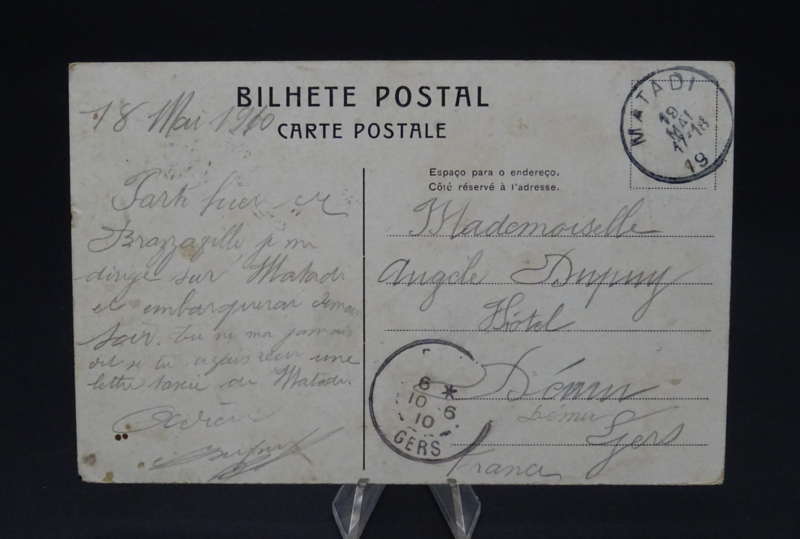 BILHETE POSTAL
CARTE POSTALE
18 Mai 1910
MATADI
19
MAI
17-18
19
Espaço para o endereço.
Côté réservé à l'adresse.
Parti hier
Brazzaville je me
dirige sur Matadi
et embarquerai demain
soir. Tu ne ma jamais
dit si tu avais reçu une
lettre taxée de Matadi.
Mademoiselle
Angèle Dupuy
Hôtel
Dému
Dému
Gers
France
6 *
10 6
10
GERS